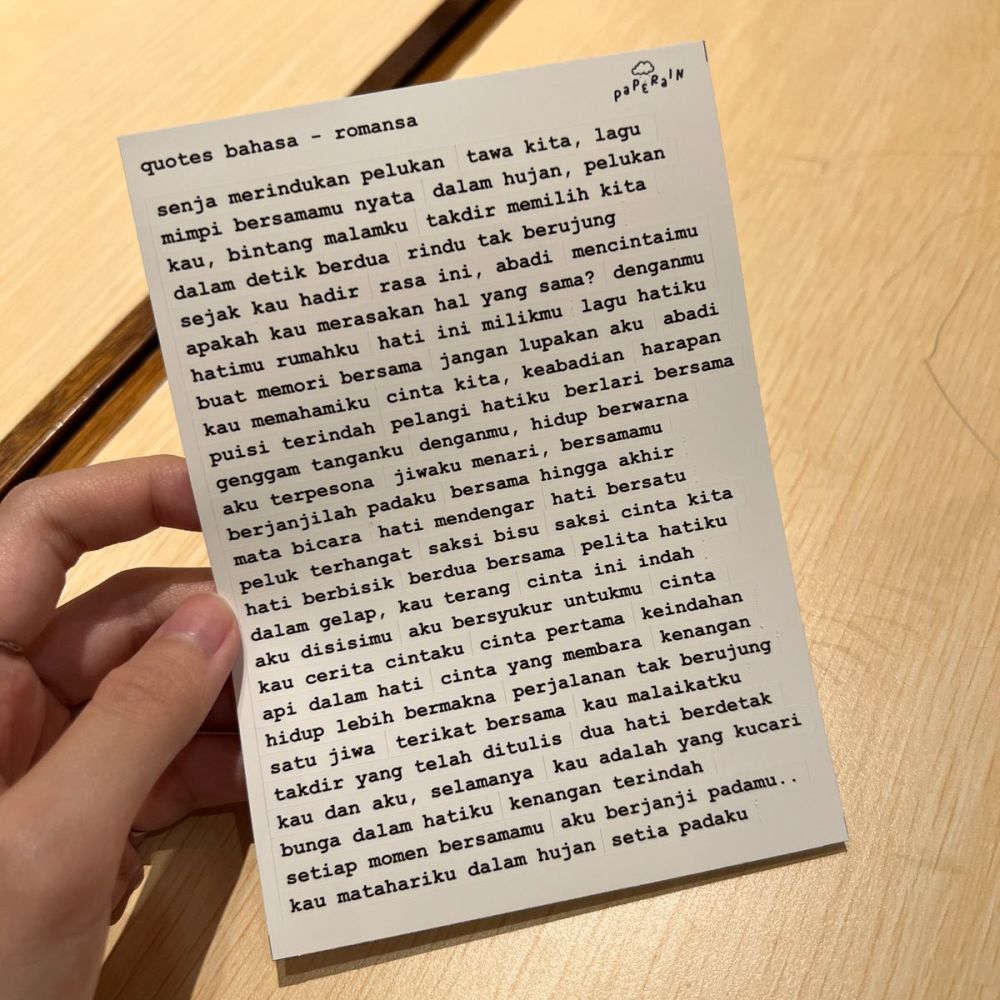 PaPERaIN
quotes bahasa - romansa
senja merindukan pelukan tawa kita, lagu
mimpi bersamamu nyata dalam hujan, pelukan
kau, bintang malamku takdir memilih kita
dalam detik berdua rindu tak berujung
sejak kau hadir rasa ini, abadi mencintaimu
apakah kau merasakan hal yang sama? denganmu
hatimu rumahku hati ini milikmu lagu hatiku
buat memori bersama jangan lupakan aku abadi
kau memahamiku cinta kita, keabadian harapan
puisi terindah pelangi hatiku berlari bersama
genggam tanganku denganmu, hidup berwarna
aku terpesona jiwaku menari, bersamamu
berjanjilah padaku bersama hingga akhir
mata bicara hati mendengar hati bersatu
peluk terhangat saksi bisu saksi cinta kita
hati berbisik berdua bersama pelita hatiku
dalam gelap, kau terang cinta ini indah
aku disisimu aku bersyukur untukmu cinta
kau cerita cintaku cinta pertama keindahan
api dalam hati cinta yang membara kenangan
hidup lebih bermakna perjalanan tak berujung
satu jiwa terikat bersama kau malaikatku
takdir yang telah ditulis dua hati berdetak
kau dan aku, selamanya kau adalah yang kucari
bunga dalam hatiku kenangan terindah
setiap momen bersamamu aku berjanji padamu..
kau matahariku dalam hujan setia padaku